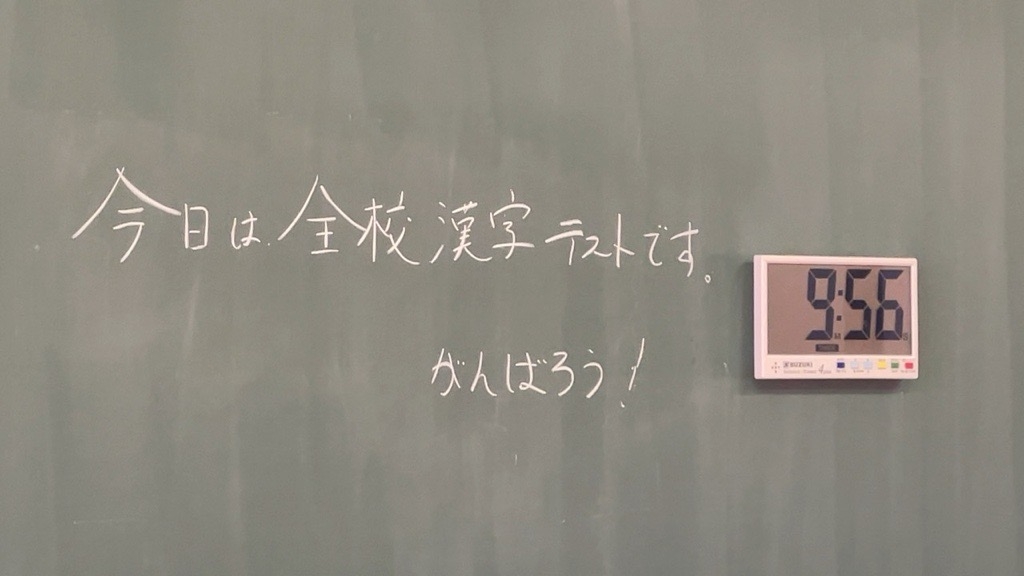 今日は全校漢字テストです。
がんばろう!
9:56
SUZUKI